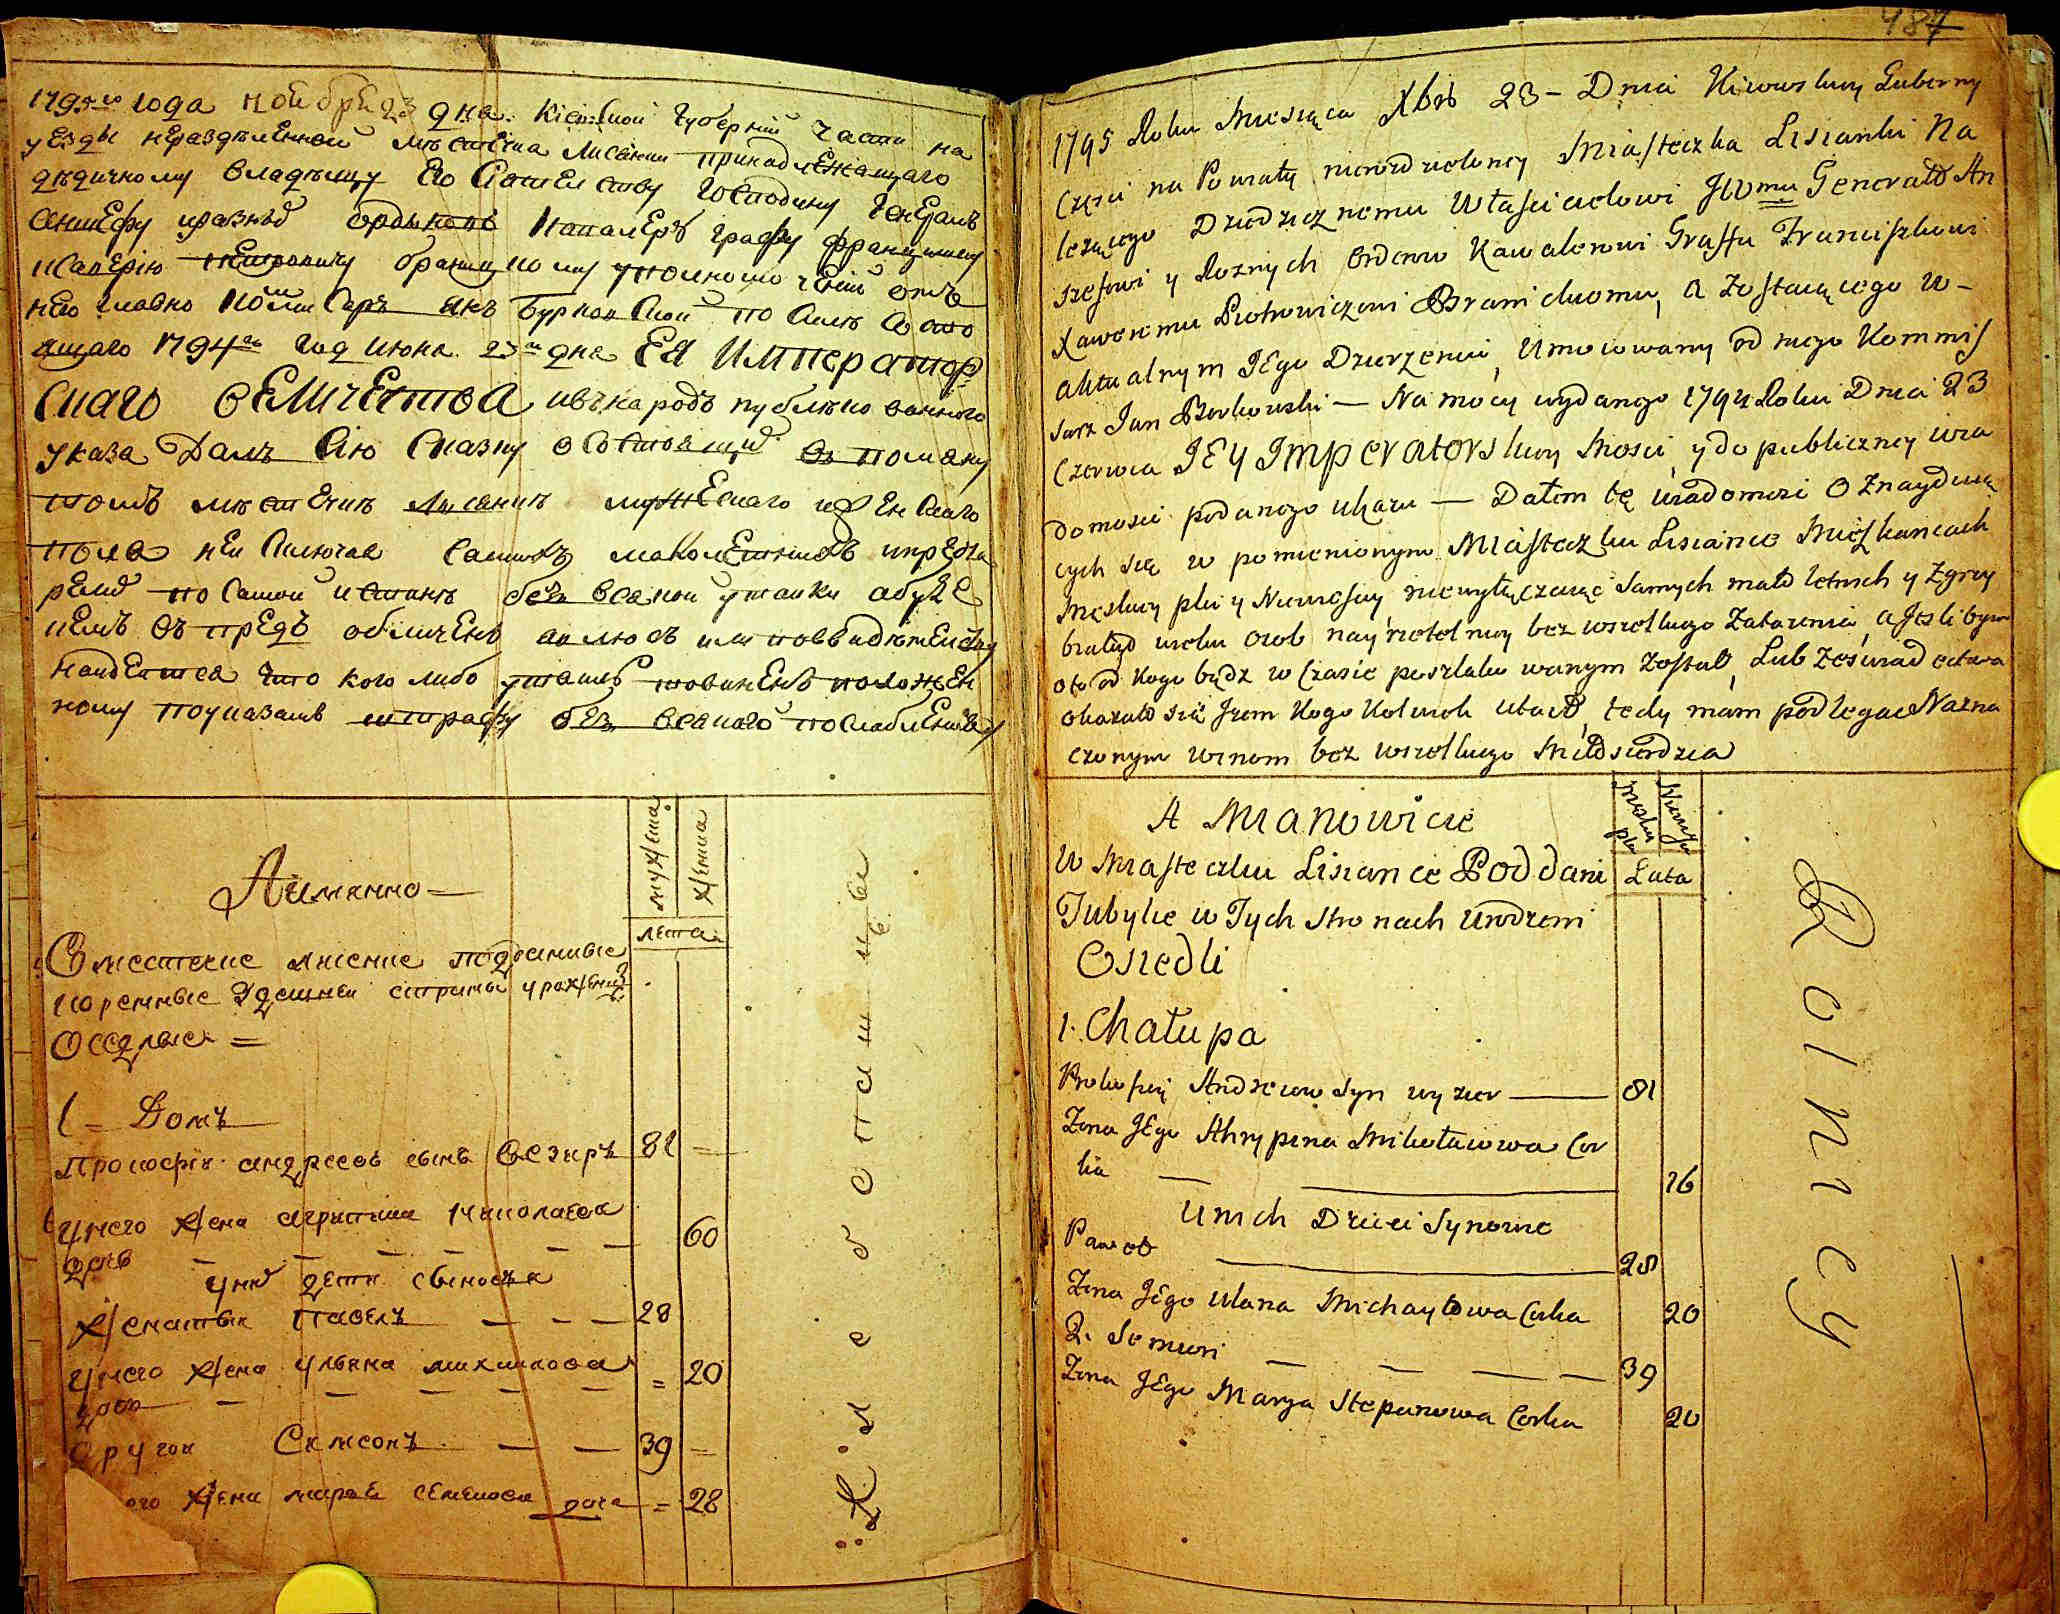 1795го года ноября 23 дна. Кіевской губерній части на
уезды нераздѣленной мѣстечка Лисянки принадлежащаго
дѣдичному владѣлцу Его Сіятелству Господину Генералъ
Аншефу иразныхъ ордыновъ Кавалеръ графу францишку
иСаверію Петровичу браницкому уполномоченій отъ
Него главно Комисаръ Янъ Бурковский по Силѣ Состо
ящаго 1794го год Июня 23го дна ЕЯ Император
Скаго ВЕЛИЧЕСТВА ивъ народъ публѣкованного
указа Далъ Сію Сказку оСостоящих въ помяну
томъ мѣстечкѣ Лисянкѣ мужескаго иженскаго
пола неи Сключая Самихъ малолѣтныхъ ипреста
релих по Самой истинѣ безъ всякой утайки абуде
кемъ въпредъ обличенъ явлюсь или повсвидѣтелству
Найдется что кого либо утаилъ повиненъ положен
ному поуказамъ штрафу без всякаго послабленія
Аимянно
мужеска
женска
лета
Вместечке лисянке подданные
коренные здешней страны урожении
Оседлые
1 Домъ
Прокофiй андреевъ сынъ Везиръ 81
унего жена агрипина николаева
дочь 60
уних дети сыновья
женатыи Павелъ 28
унего жена ульяна михаилова
дочь 20
другои Самсонъ 39
его жена марья семенова дочь 28
Хлебопашцы
487
1795 Roku Miesiąca Xbrs 23 Dnia Kiiowskiey Guberny
Częsci na Powiaty nierozdzieloney Miasteczka Lisianki Na
lezącego Dziedzicznemu Własicielowi JWmu Generałd An
szefowi y Roznych Orderow Kawalerowi Graffu Franciszkowi
Xaweremu Piotrowiczowi Branickiemu, a Zostaiącego w
aktualnym JEgo Dzierzeniu, Umocowany od niego Kommis
sarz Jan Borkowski — Na mocy wydanego 1794 Roku Dnia 23
Czerwca JEY IMPERATORskiey Mosci, y do publiczney wia
domosci podanego ukazu — Dałem tę wiadomosc o Znayduią
cych się w pomienionym Miasteczku Lisiance Mieszkancach
Męskiey płci y Niewiesciey niewyłączaiąc samych mało letnich y Zgrzy
białych wieku osob nayrzetelniey bez wszelkiego Zataienia, a Jeslibym
oto od Kogo bądz w Czasie poszlakowanym Został, Lub Zeswiadectwa
okazało się Jzem Kogo Kolwiek utaił, tedy mam podlegac Nazna
czonym winom bez wszelkiego Miłosierdzia
A Mianowicie
Męskiey płci
Niewiesc
Lata
W Miasteczku Lisiance Poddani
Tubylce w Tych Stronach Urodzeni
Osiedli
1. Chałupa
Prokofiey Andreiow Syn wyzier 81
Zona JEgo Ahrypina Mikołaiowa Cor
ka 76
Unich Dzieci Synowie
Paweł 28
Zona JEgo Ulana Michayłowa Corka 20
2. Semion 39
Zona JEgo Marya Stepanowa Corka 20
Rolnicy